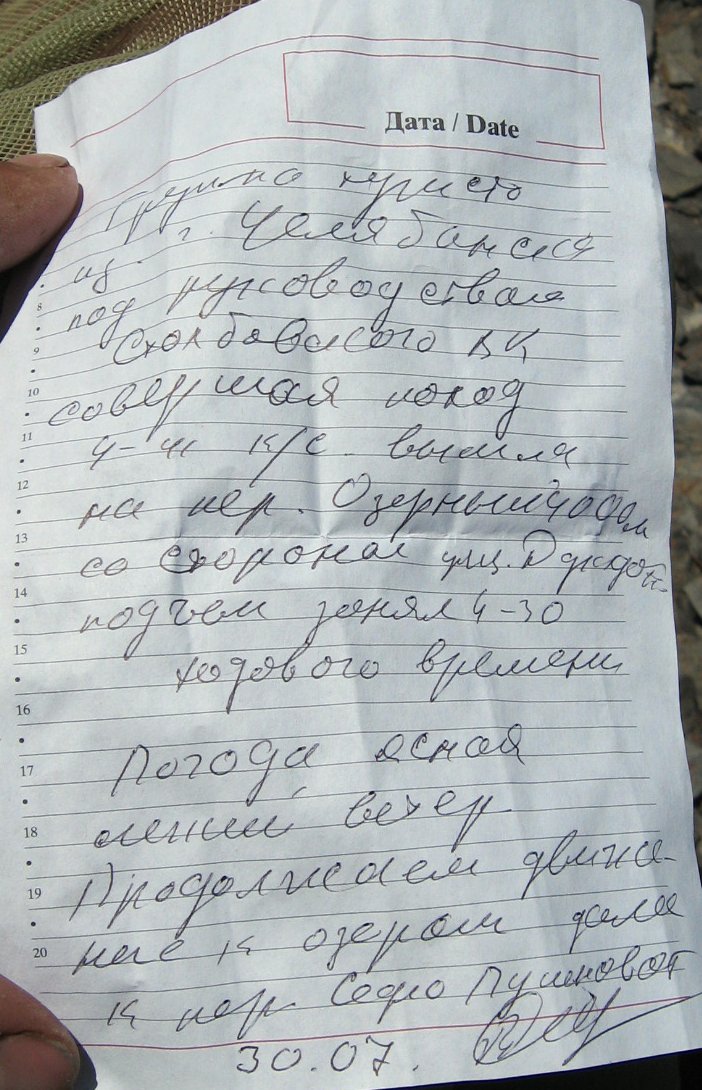 Дата / Date
Группа туристо
из г. Челябинска
под руководством
Столбовского В К
совершая поход
4-й к/с. вышла
на пер. Озерный
со стороны ущ.
подъем занял 4-30
ходового времени
Погода ясная
легкий ветер
Продолжаем движе-
ние к озерам далее
к пер.
30.07.
8
9
10
11
12
13
14
15
16
17
18
19
20